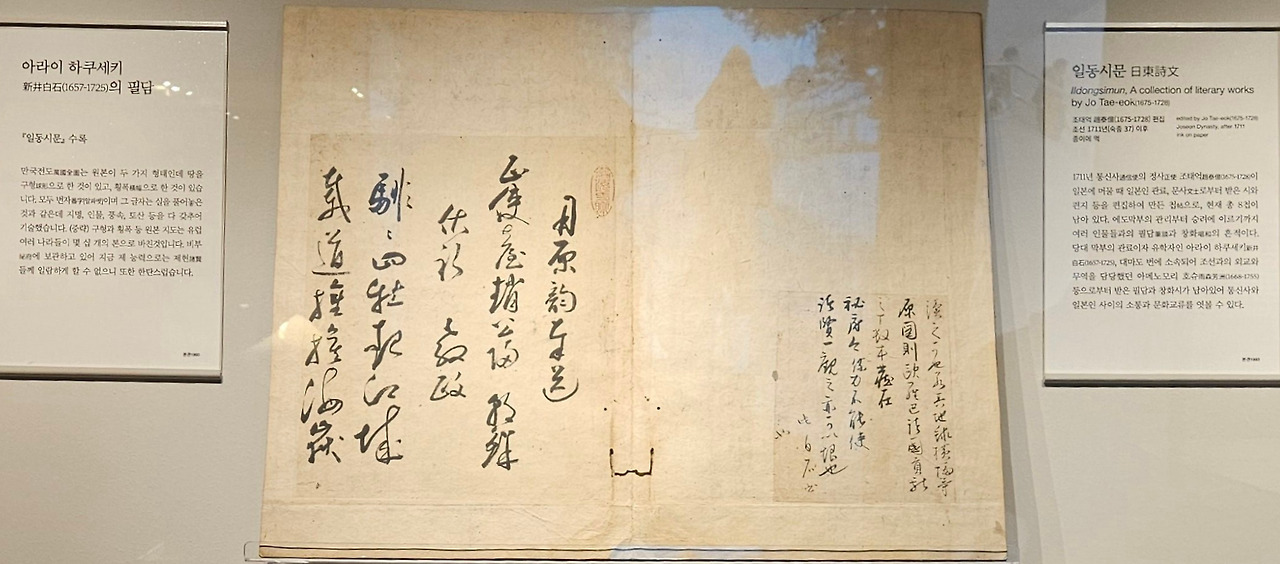 아라이 하쿠세키
新井白石(1657-1725)의 필담
『일동시문』 수록
만국전도萬國全圖는 원본이 두 가지 형태인데 땅을
구형球形으로 한 것이 있고, 횡폭橫幅으로 한 것이 있습
니다. 모두 번자番字이며 그 글자는 실을 풀어놓은
것과 같은데 지명, 인물, 풍속, 토산 등을 다 갖추어
기술했습니다. (중략) 구형과 횡폭 등 원본 지도는 유럽
여러 나라들이 몇 십 개의 본으로 바친것입니다. 비부
秘府에 보관하고 있어 지금 제 능력으로는 제현諸賢
들께 일람하게 할 수 없으니 또한 한탄스럽습니다.
用原韵奉送
正使
趙公
伏祈
馴
江城
道
海嶽
地球橫幅等
原圖則歐羅巴諸國貢獻
之十數本藏在
秘府今僕力不能使
諸賢一觀之亦可以恨也
白石
일동시문 日東詩文
Ildongsimun, A collection of literary works
by Jo Tae-eok(1675-1728)
조태억 趙泰億(1675-1728) 편집
조선 1711년(숙종 37) 이후
종이에 먹
edited by Jo Tae-eok(1675-1728)
Joseon Dynasty, after 1711
ink on paper
1711년 통신사通信使의 정사正使 조태억趙泰億(1675-1728)이
일본에 머물 때 일본인 관료, 문사文士로부터 받은 시와
편지 등을 편집하여 만든 첩帖으로, 현재 총 8첩이
남아 있다. 에도막부의 관리부터 승려에 이르기까지
여러 인물들과의 필담筆談과 창화唱和의 흔적이다.
당대 막부의 관료이자 유학자인 아라이 하쿠세키新井
白石(1657-1725), 대마도 번에 소속되어 조선과의 외교와
무역을 담당했던 아메노모리 호슈雨森芳洲(1668-1755)
등으로부터 받은 필담과 창화시가 남아있어 통신사와
일본인 사이의 소통과 문화교류를 엿볼 수 있다.